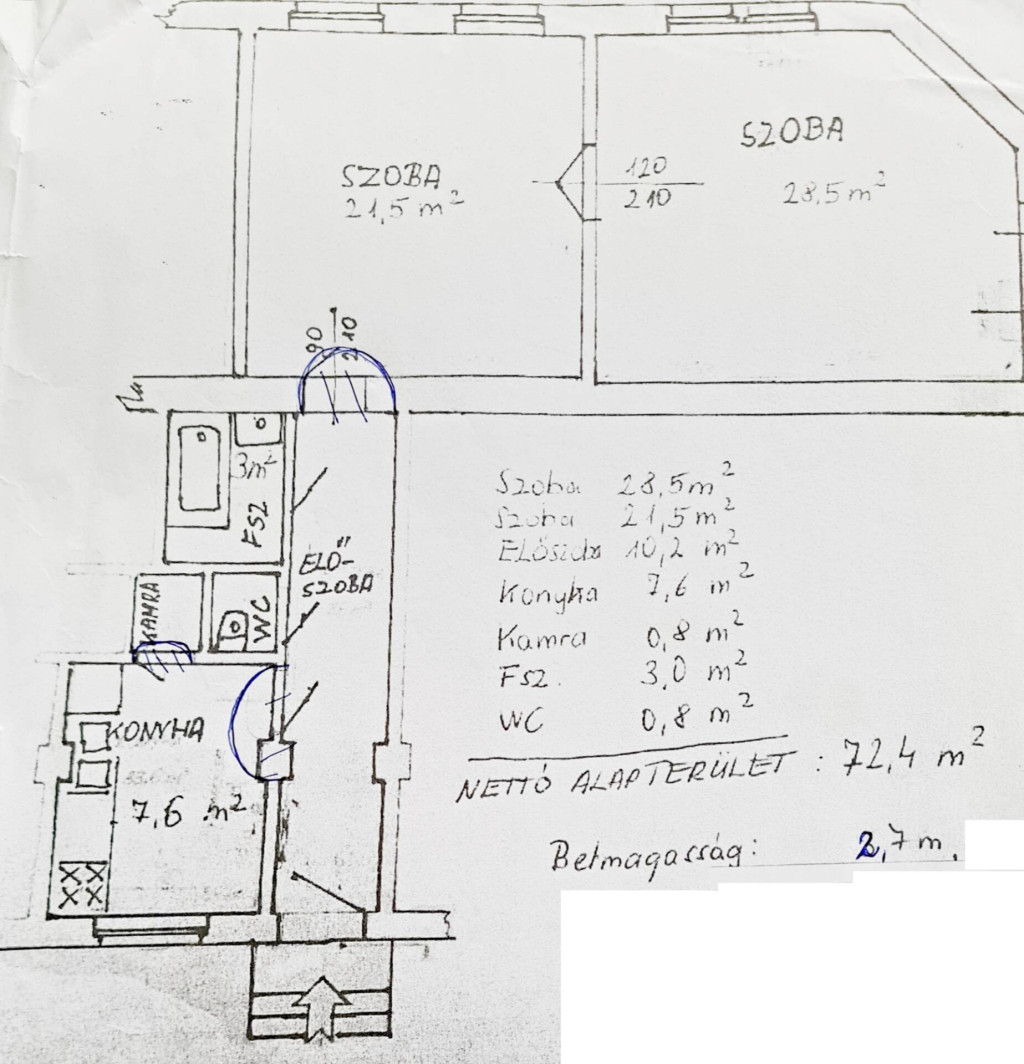 SZOBA
21,5 m²
120
210
SZOBA
28,5 m²
90
210
3m²
FSZ
ELŐ-
SZOBA
KAMRA
WC
KONYHA
7,6 m²
Szoba 28,5m²
Szoba 21,5m²
Előszoba 10,2 m²
Konyha 7,6 m²
Kamra 0,8 m²
Fsz. 3,0 m²
WC 0,8 m²
NETTÓ ALAPTERÜLET : 72,4 m²
Belmagasság: 2,7 m.